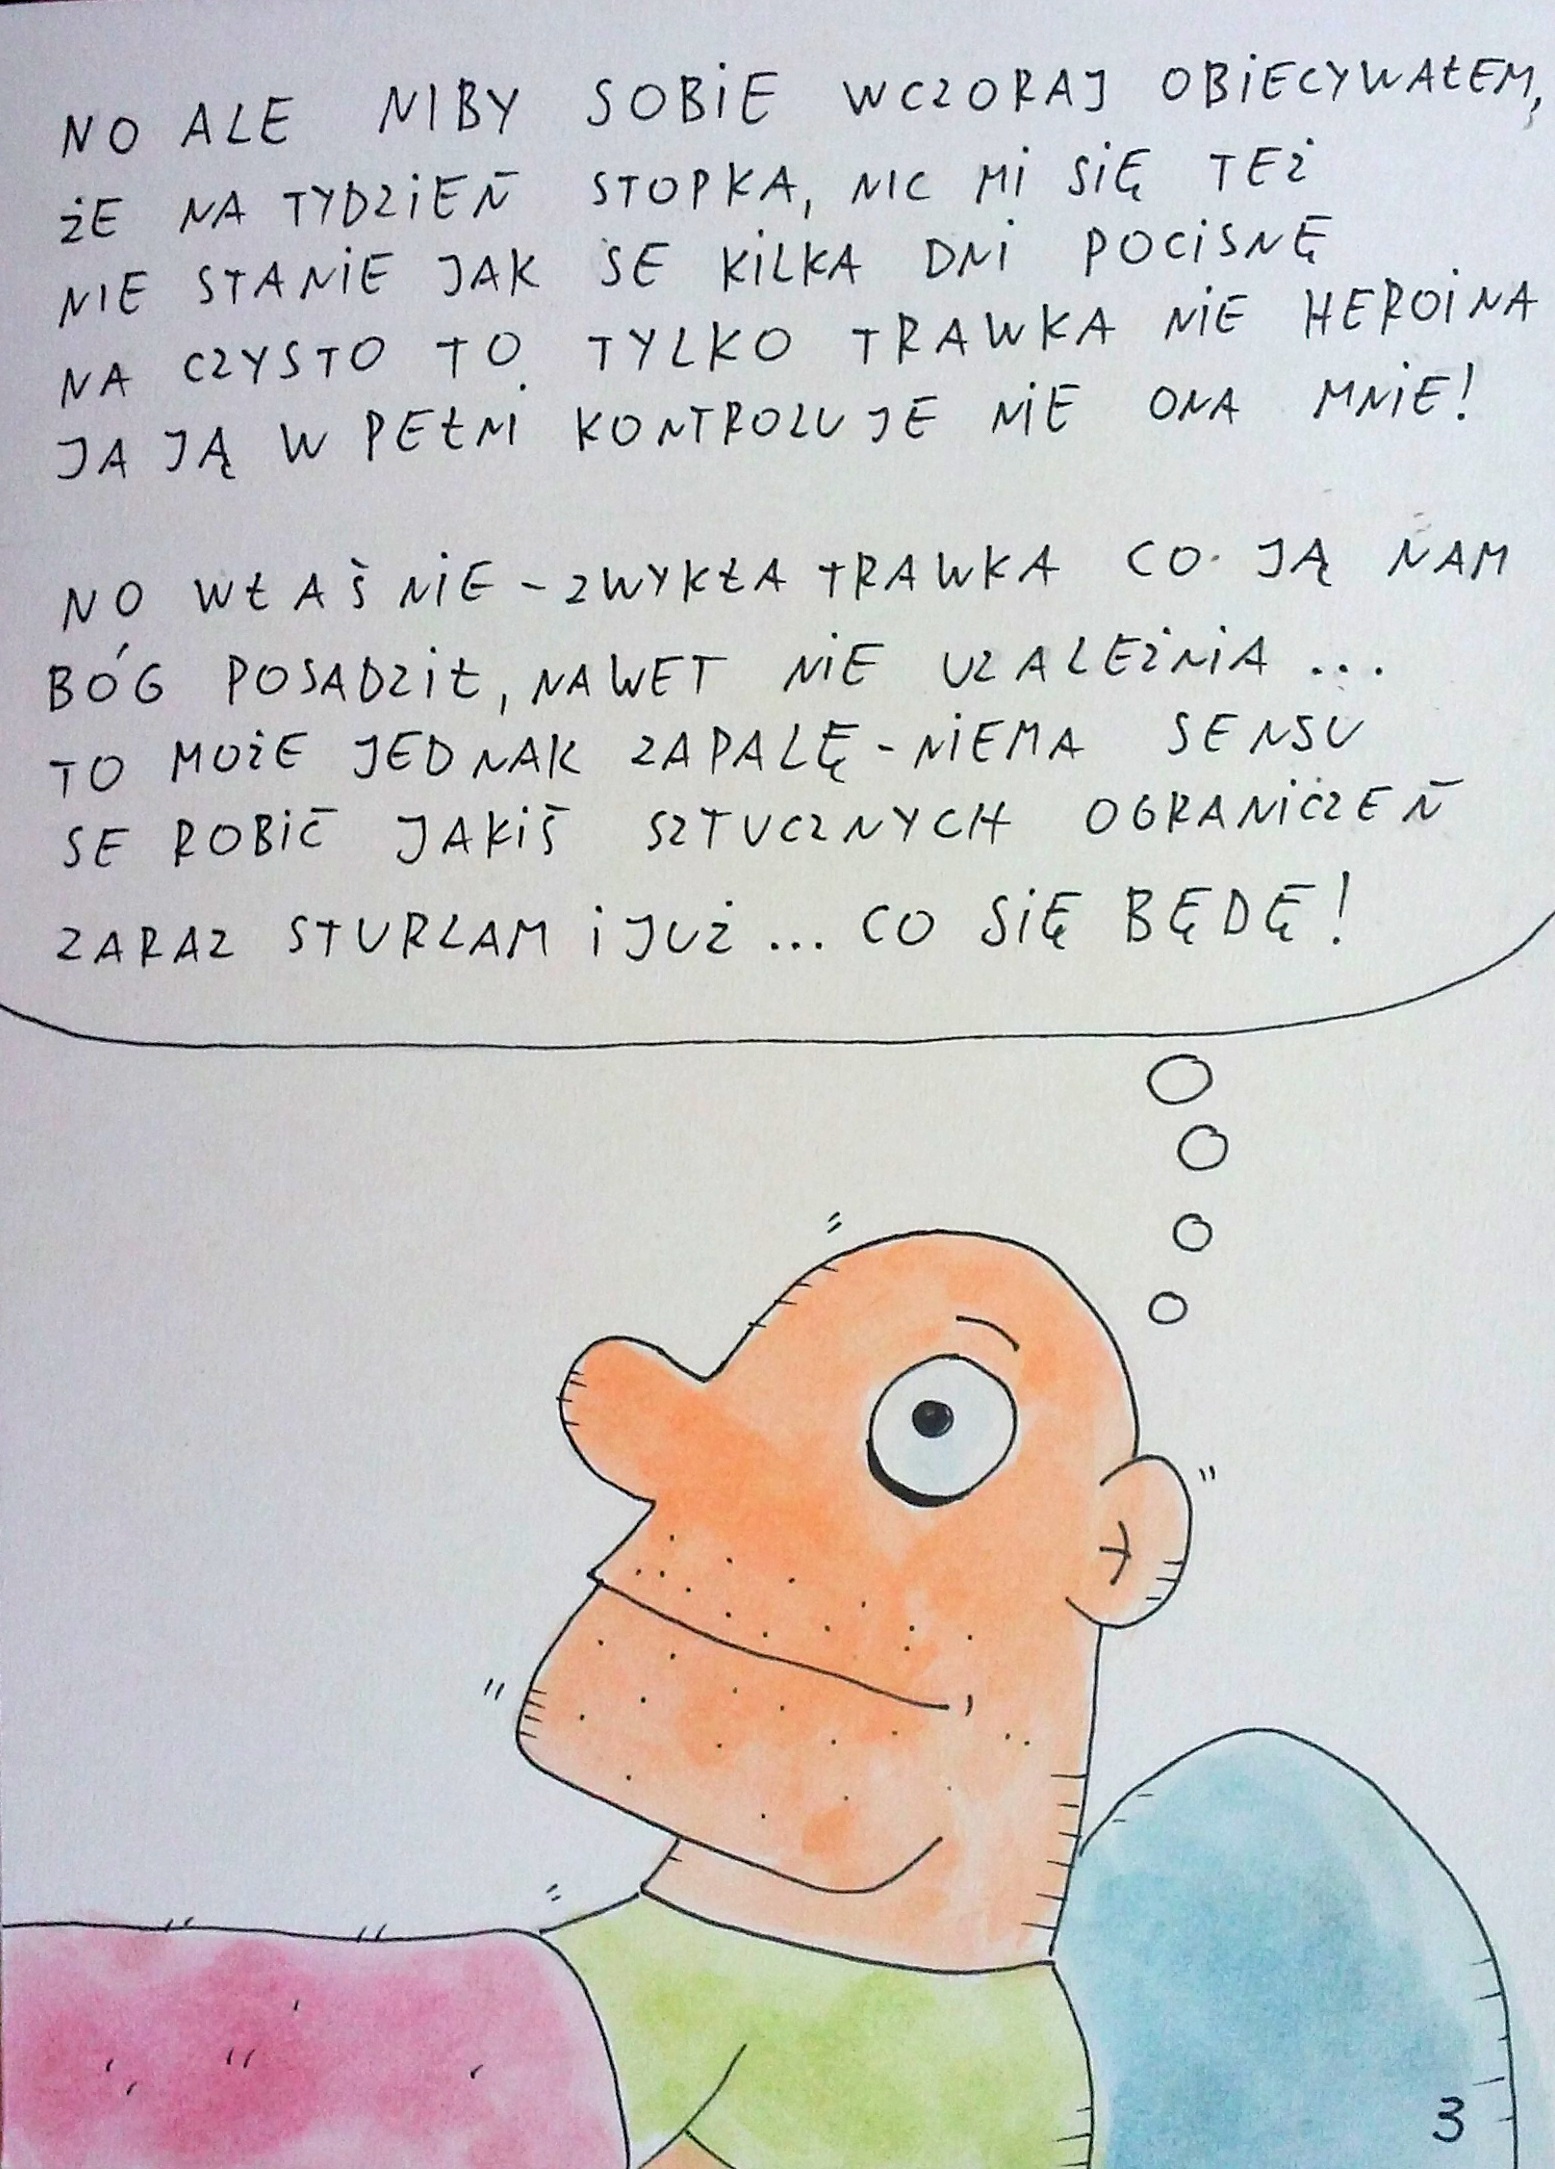 NO ALE NIBY SOBIE WCZORAJ OBIECYWAŁEM,
ŻE NA TYDZIEŃ STOPKA, NIC MI SIĘ TEŻ
NIE STANIE JAK SE KILKA DNI POCISNĘ
NA CZYSTO TO TYLKO TRAWKA NIE HEROINA
JA JĄ W PEŁNI KONTROLUJE NIE ONA MNIE!
NO WŁAŚNIE - ZWYKŁA TRAWKA CO JĄ NAM
BÓG POSADZIŁ, NAWET NIE UZALEŻNIA ...
TO MOŻE JEDNAK ZAPALĘ - NIEMA SENSU
SE ROBIĆ JAKIŚ SZTUCZNYCH OGRANICZEŃ
ZARAZ STURLAM I JUŻ ... CO SIĘ BĘDĘ!
3